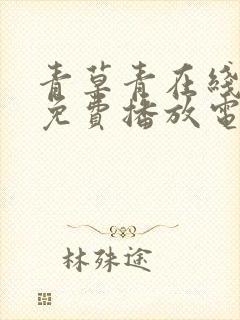 青草青在线
免费播放电
林殊途